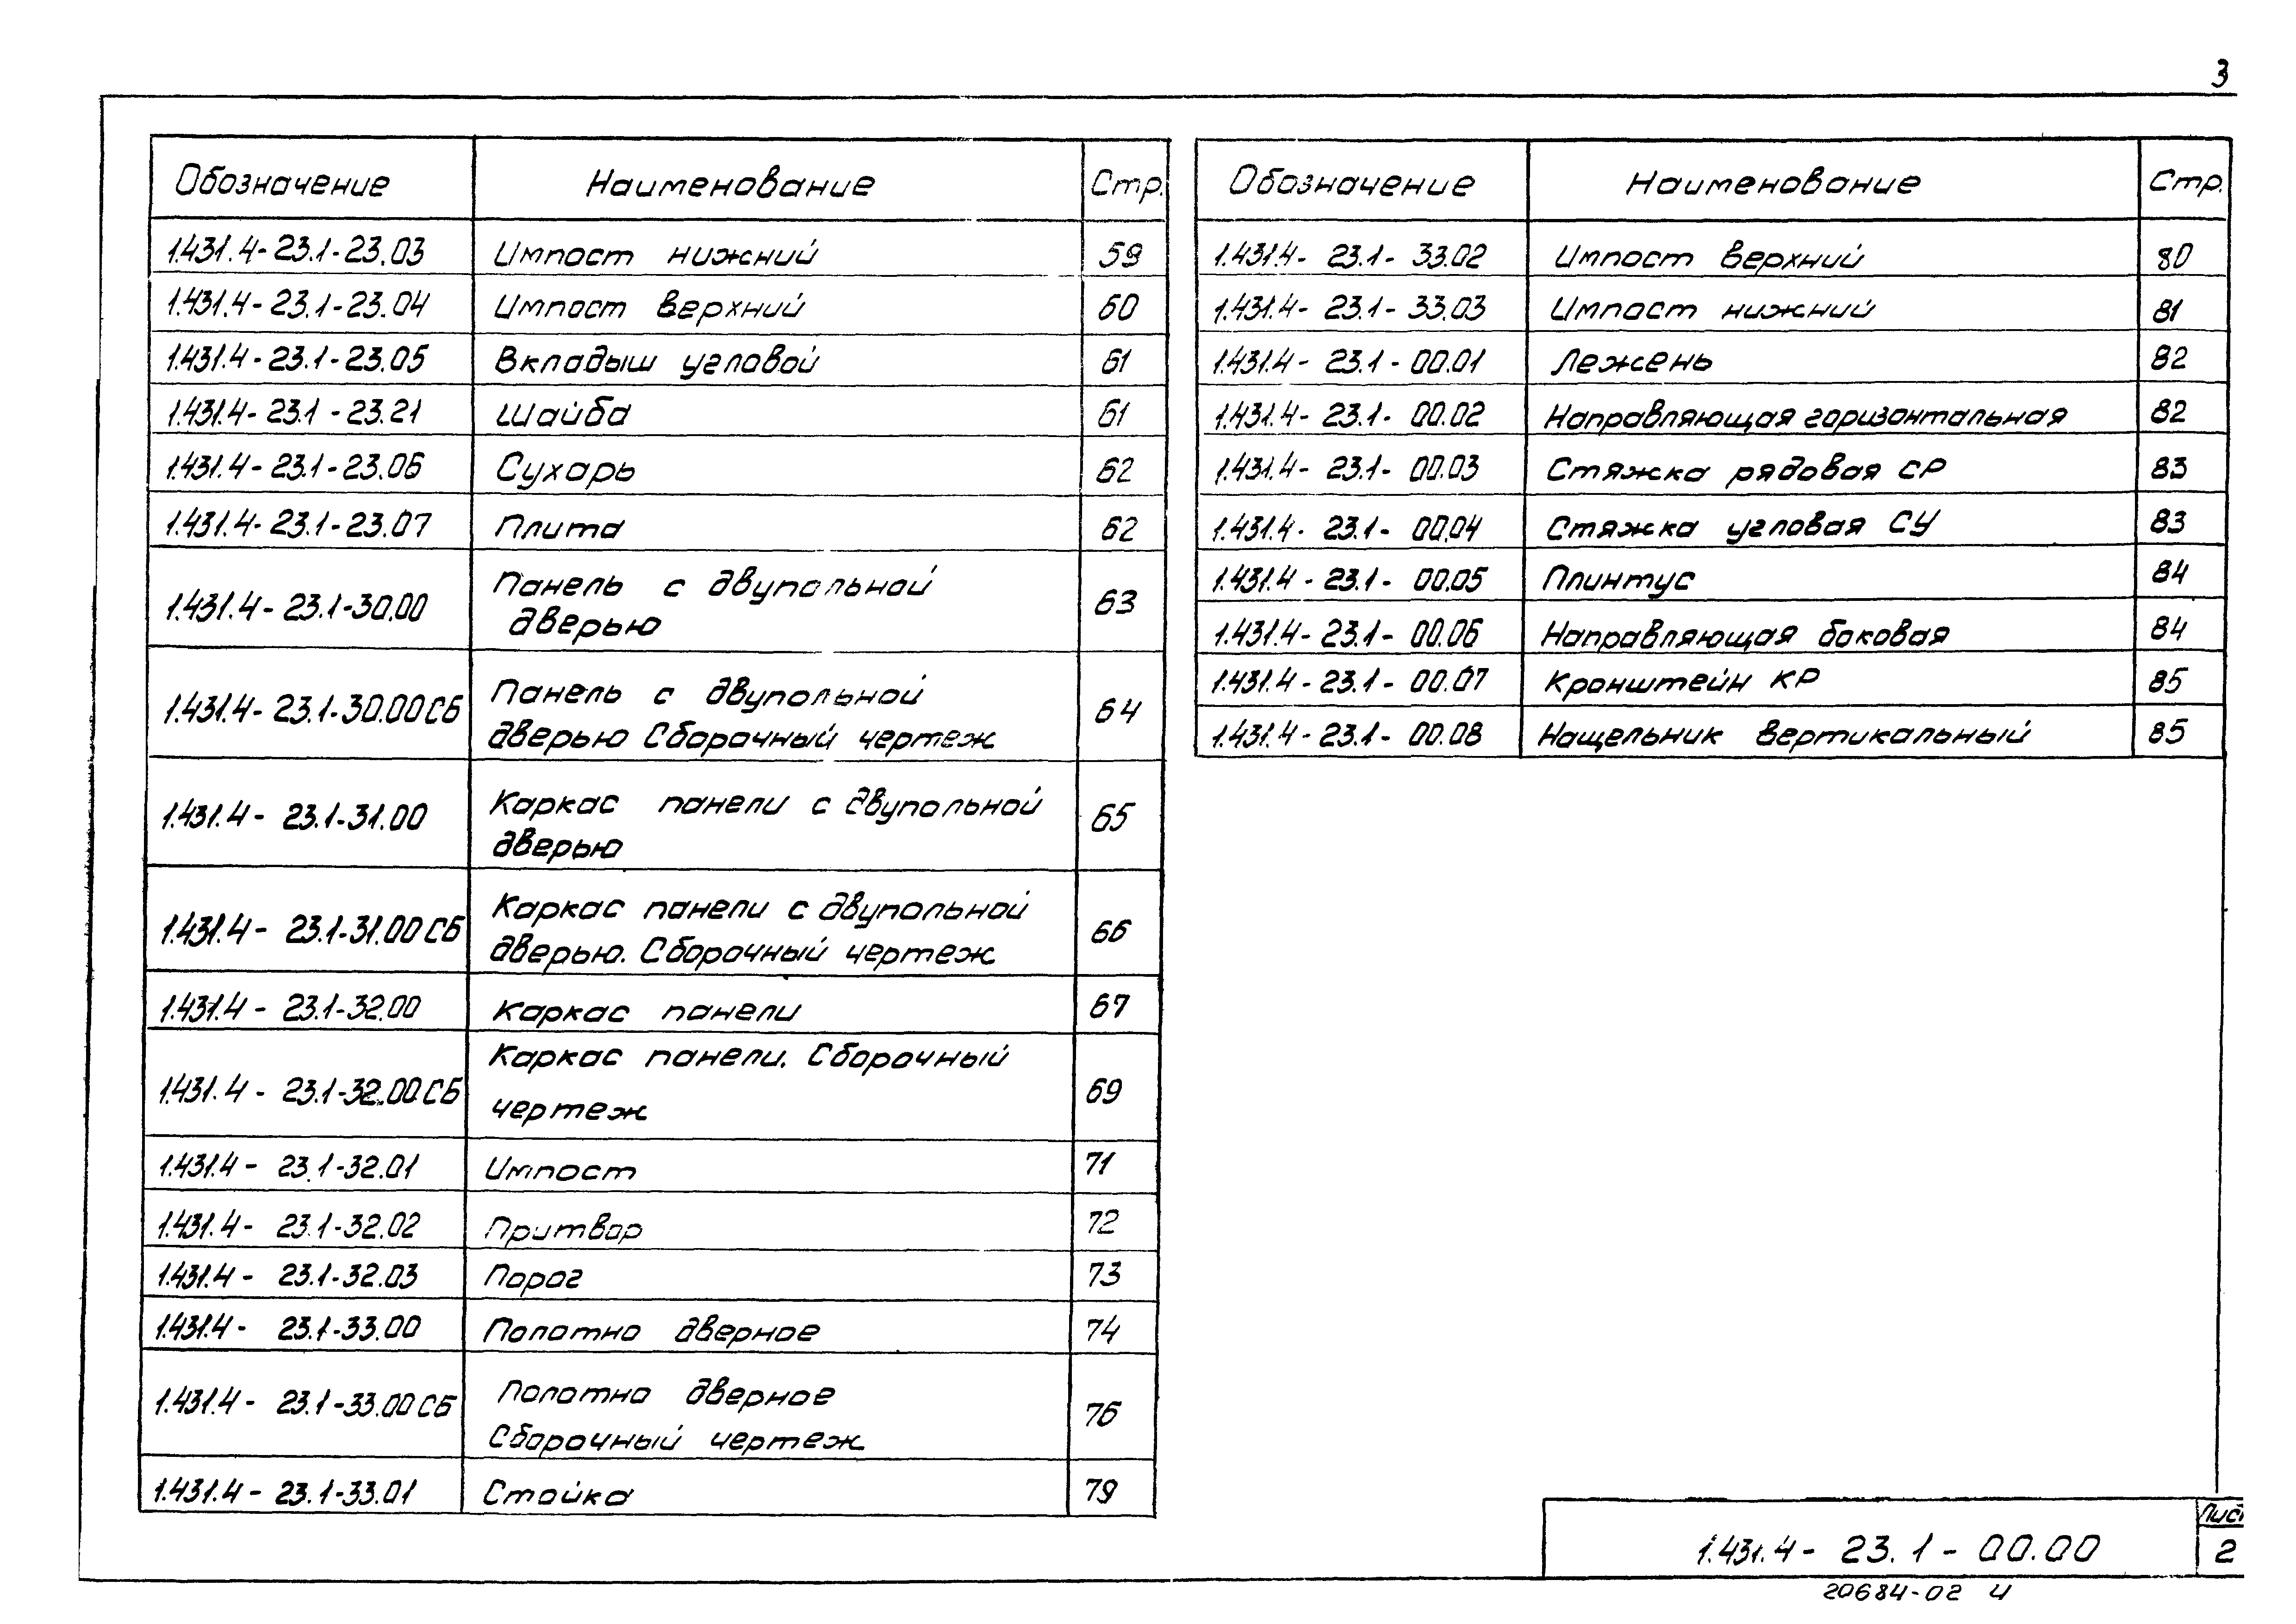 3
Обозначение Наименование Стр.
1.431.4-23.1-23.03 Импост нижний 59
1.431.4-23.1-23.04 Импост верхний 60
1.431.4-23.1-23.05 Вкладыш угловой 61
1.431.4-23.1-23.21 Шайба 61
1.431.4-23.1-23.06 Сухарь 62
1.431.4-23.1-23.07 Плита 62
1.431.4-23.1-30.00 Панель с двупольной
дверью 63
1.431.4-23.1-30.00СБ Панель с двупольной
дверью Сборочный чертеж 64
1.431.4-23.1-31.00 Каркас панели с двупольной
дверью 65
1.431.4-23.1-31.00СБ Каркас панели с двупольной
дверью. Сборочный чертеж 66
1.431.4-23.1-32.00 Каркас панели 67
1.431.4-23.1-32.00.СБ Каркас панели. Сборочный
чертеж 69
1.431.4-23.1-32.01 Импост 71
1.431.4-23.1-32.02 Притвор 72
1.431.4-23.1-32.03 Порог 73
1.431.4-23.1-33.00 Полотно дверное 74
1.431.4-23.1-33.00СБ Полотно дверное
Сборочный чертеж 76
1.431.4-23.1-33.01 Стойка 79
Обозначение Наименование Стр.
1.431.4-23.1-33.02 Импост верхний 80
1.431.4-23.1-33.03 Импост нижний 81
1.431.4-23.1-00.01 Лежень 82
1.431.4-23.1-00.02 Направляющая горизонтальная 82
1.431.4-23.1-00.03 Стяжка рядовая СР 83
1.431.4-23.1-00.04 Стяжка угловая СУ 83
1.431.4-23.1-00.05 Плинтус 84
1.431.4-23.1-00.06 Направляющая боковая 84
1.431.4-23.1-00.07 Кронштейн КР 85
1.431.4-23.1-00.08 Нащельник вертикальный 85
1.431.4-23.1-00.00
Лист
2
20684-02 4